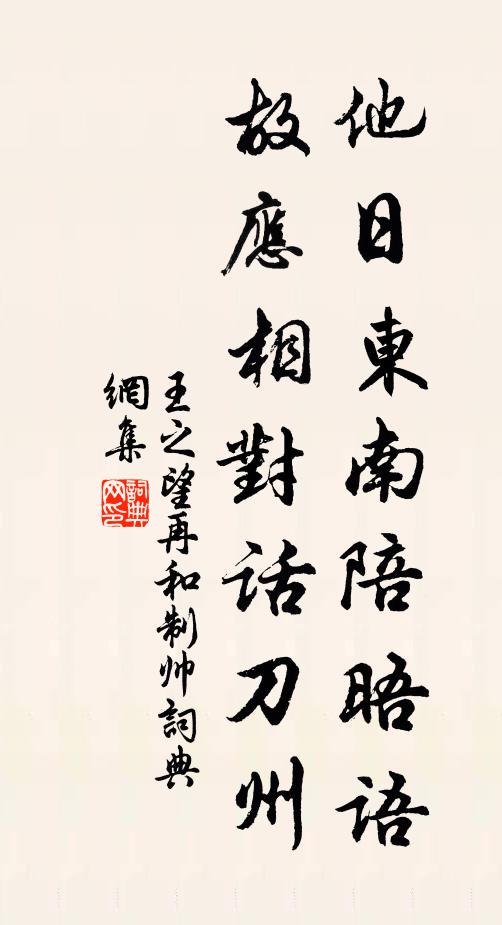 他日東南陪晤语
故應相對话刀州
王之望再和制帅詞典
網集
詞典
网印